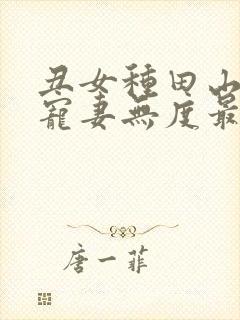 丑女種田山
寵妻無度最
唐一菲